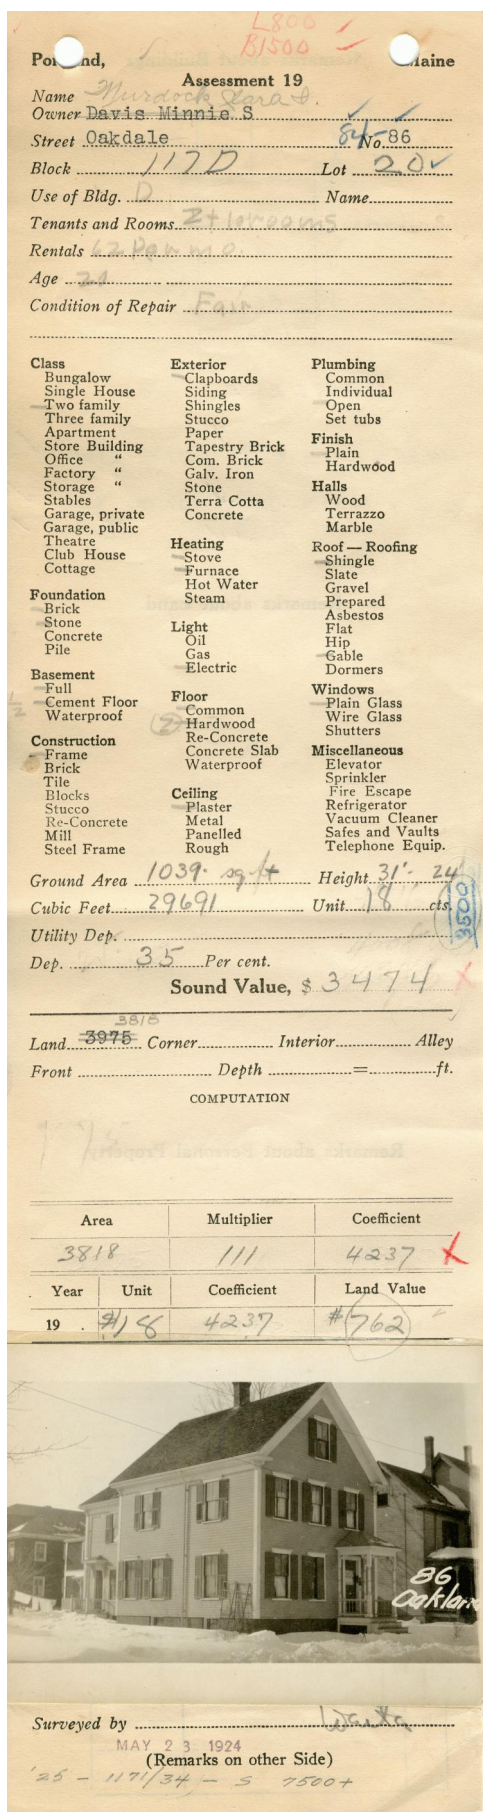 L800
B1500
Portland, Maine
Assessment 19
Name Murdock
Owner Davis Minnie S
Street Oakdale 84- No. 86
Block 117D Lot 20
Use of Bldg. D Name
Tenants and Rooms 2+10 rooms
Rentals 62 per mo.
Age
Condition of Repair Fair
Class
Bungalow
Single House
Two family
Three family
Apartment
Store Building
Office "
Factory "
Storage "
Stables
Garage, private
Garage, public
Theatre
Club House
Cottage
Foundation
Brick
Stone
Concrete
Pile
Basement
1/2
Full
Cement Floor
Waterproof
Construction
Frame
Brick
Tile
Blocks
Stucco
Re-Concrete
Mill
Steel Frame
Exterior
Clapboards
Siding
Shingles
Stucco
Paper
Tapestry Brick
Com. Brick
Galv. Iron
Stone
Terra Cotta
Concrete
Heating
Stove
Furnace
Hot Water
Steam
Light
Oil
Gas
Electric
Floor
Common
2 Hardwood
Re-Concrete
Concrete Slab
Waterproof
Ceiling
Plaster
Metal
Panelled
Rough
Plumbing
Common
Individual
Open
Set tubs
Finish
Plain
Hardwood
Halls
Wood
Terrazzo
Marble
Roof — Roofing
Shingle
Slate
Gravel
Prepared
Asbestos
Flat
Hip
Gable
Dormers
Windows
Plain Glass
Wire Glass
Shutters
Miscellaneous
Elevator
Sprinkler
Fire Escape
Refrigerator
Vacuum Cleaner
Safes and Vaults
Telephone Equip.
Ground Area 1039. sq. ft Height 31'- 24'
Cubic Feet 29691 Unit 18 cts.
3500
Utility Dep.
Dep. 35 Per cent.
Sound Value, $ 3474
3818
Land 3975 Corner Interior Alley
Front Depth = ft.
COMPUTATION
Area Multiplier Coefficient
3818 111 4237
Year Unit Coefficient Land Value
19 . $18 4237 $762
86
Oakland
Surveyed by
MAY 23 1924
(Remarks on other Side)
'25 - 1171/34 - S 7500+